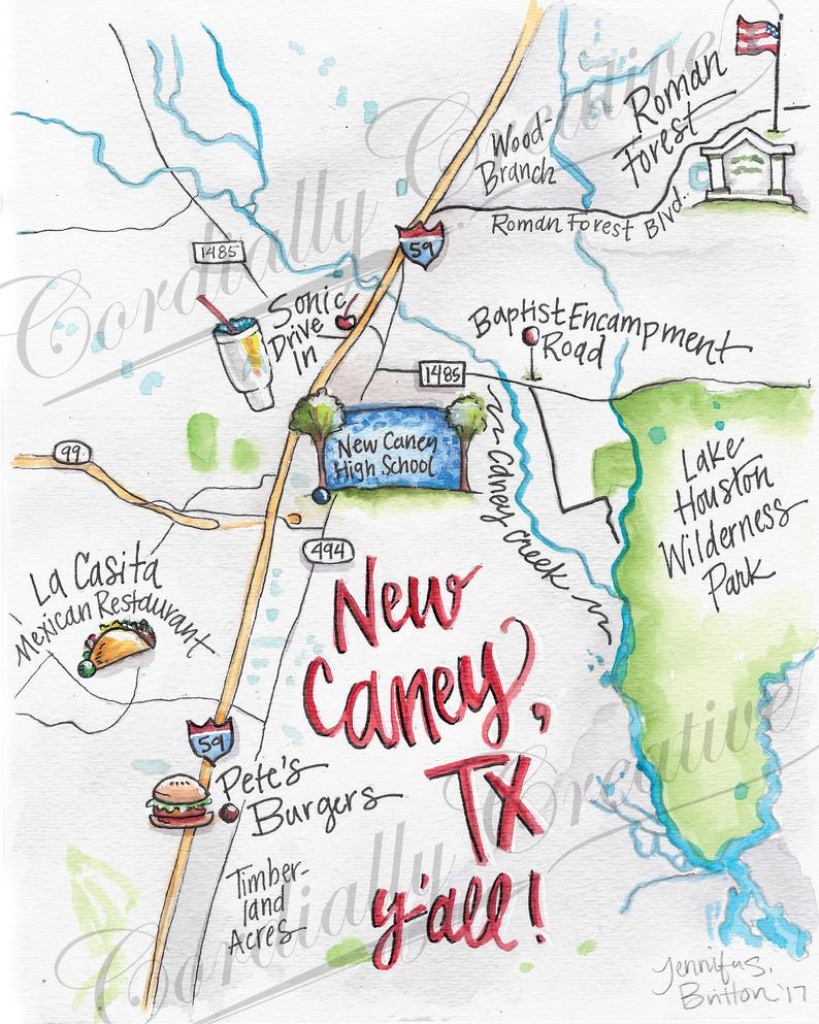 Cordially Creative
Roman
Forest
Wood-
Branch
Roman Forest Blvd.
59
1485
Sonic
Drive
In
Baptist Encampment
Road
1485
New Caney
High School
Caney Creek
99
494
Lake
Houston
Wilderness
Park
La Casita
Mexican Restaurant
New
Caney,
TX
y'all!
59
Pete's
Burgers
Timber-
land
Acres
Cordially Creative
Jennifer S.
Britton '17